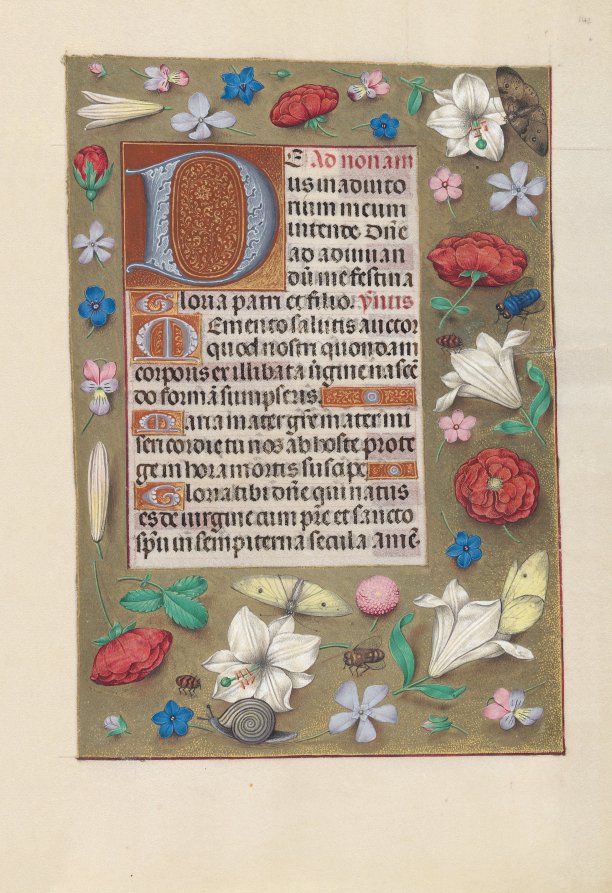 DE Ad nonam
us in adiuto
rium meum
intende Dñe
ad adiuuan
dũ me festina
Gloria patri et filio. ỹnus
Memento salutis auctor
quod nostri quondam
corporis ex illibata ũgine nasce
do formã sumpseris.
Maria mater grẽ mater mi
sericordie tu nos ab hoste prote
ge in hora mortis suscipe
Gloria tibi dñe qui natus
es de uirgine cum pr̃e et sancto
spũ in sempiterna secula amẽ